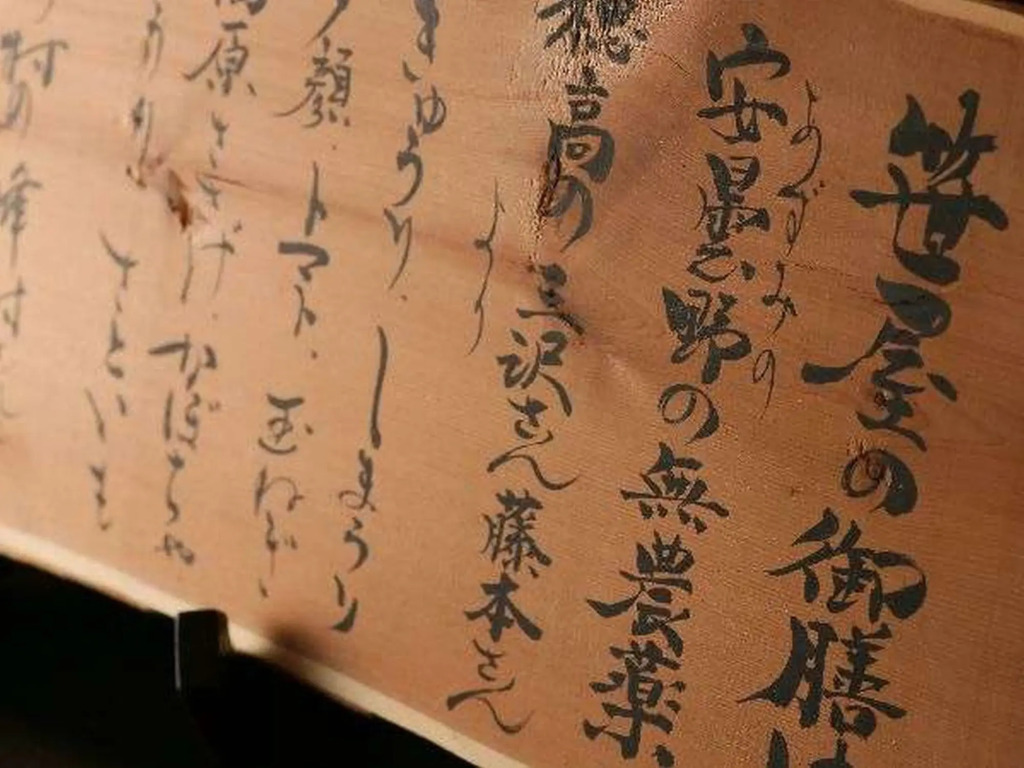 笹屋の御膳は
安曇野の無農薬、
ようずみの
穂高の三沢さん藤本さん
より
きゅうり、しまうり
夕顔、トマト、玉ねぎ、
高原ささげ、かぼちゃ
うり
さといも
村の